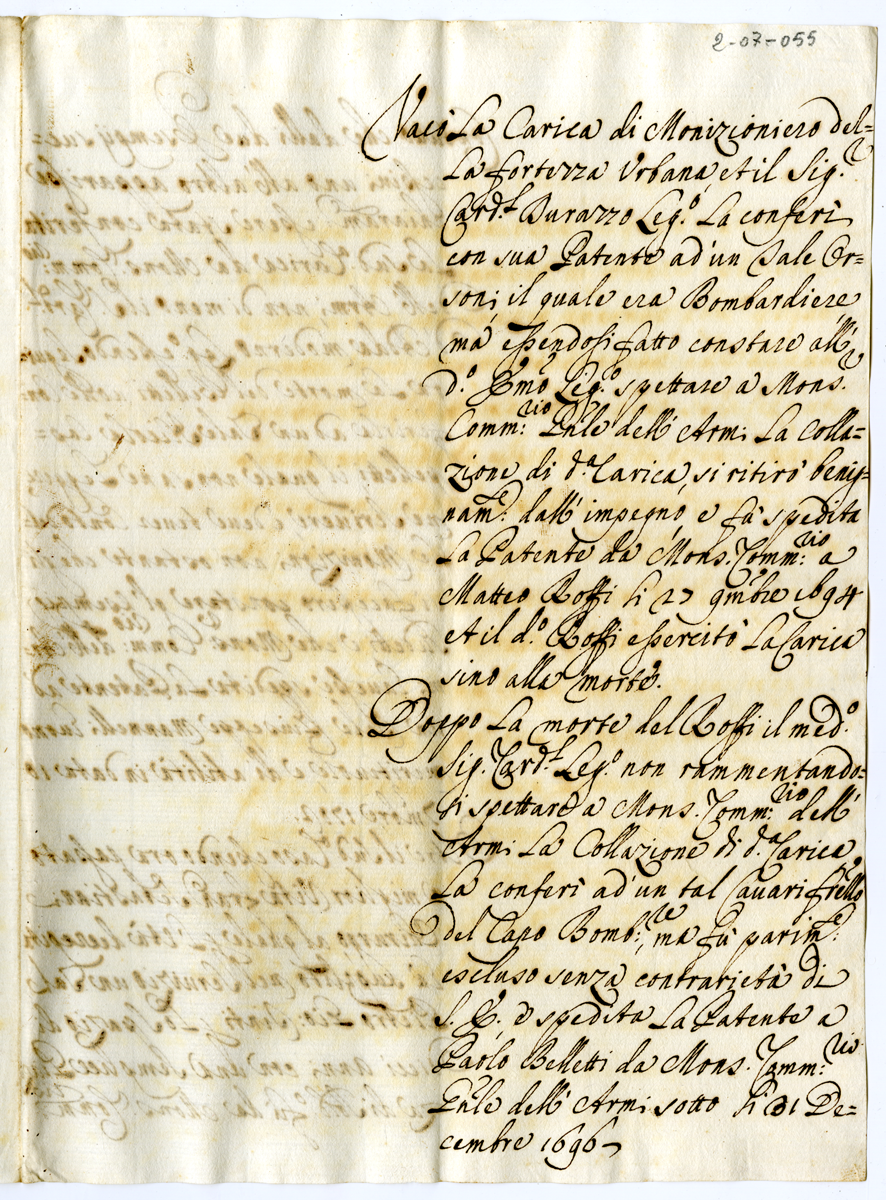 2-07-055
Vacò La Carica di Monizioniero del=
La fortezza Urbana, et il Sig.r
Card.l Durazzo Leg.o La conferì
con sua Patente ad'un Sale Or=
soni, il quale era Bombardiere
mà essendosi fatto constare all'
d.o Emo Leg.o spettare a Mons.r
Comm:rio Gnle dell'Armi La Colla=
zione di d.a Carica, si ritirò benig=
nam.e dall'impegno, e fù spedita
La Patente da Mons. Comm:rio a
Matteo Roffi li 27 9mbre 1694
et il d.o Roffi essercitò La Carica
sino alla morte.
Doppo La morte del Roffi il med.o
Sig. Card.l Leg.o non rammentando=
si spettare a Mons. Comm:rio dell'
Armi La Collazione di d.a Carica,
La conferì ad'un tal Cavari frello
del Capo Bomb:re, ma fù parim.e
escluso senza contrarietà di
S. E. e spedita La Patente a
Paolo Belletti da Mons. Comm:rio
Gnle dell'Armi sotto li 31 De=
cembre 1696